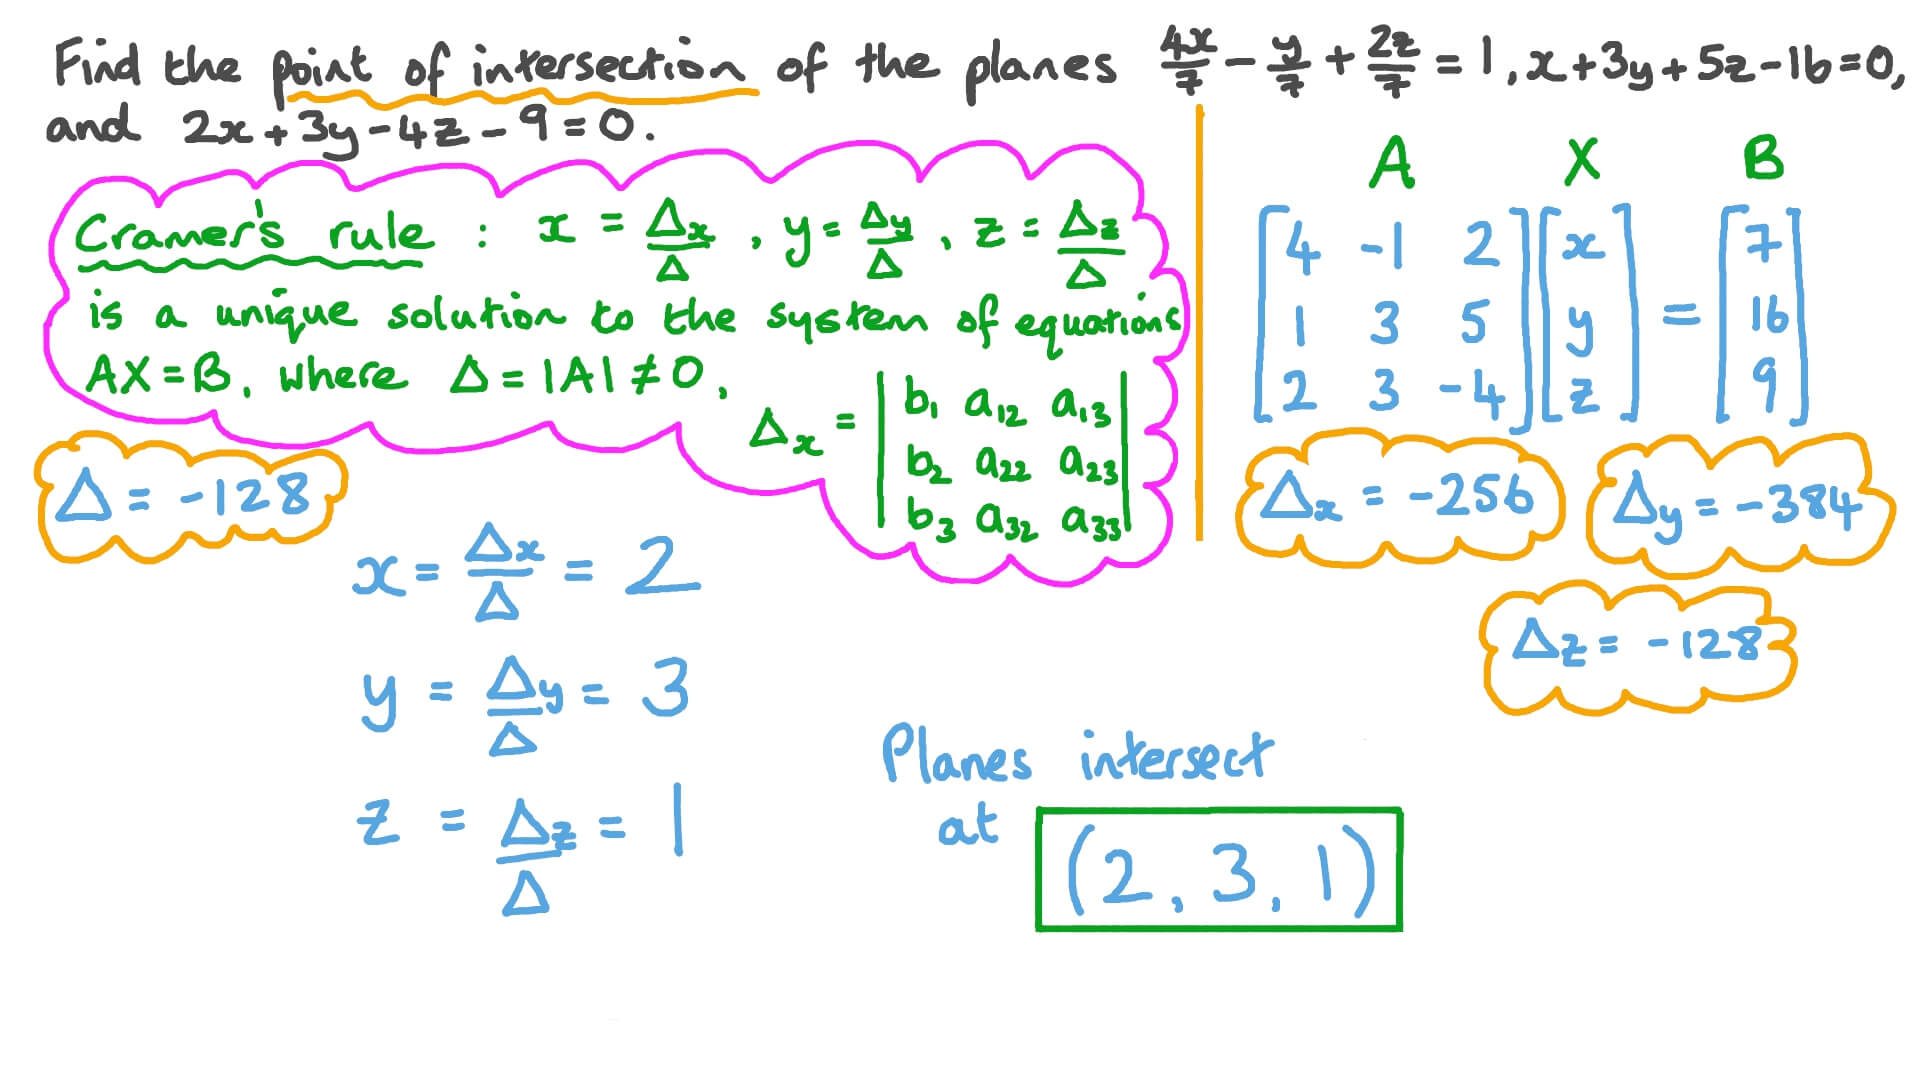 Find the point of intersection of the planes 4x/7 - y/7 + 2z/7 = 1, x+3y+5z-16=0,
and 2x+3y-4z-9=0.
Cramer's rule : x = Δx/Δ, y = Δy/Δ, z = Δz/Δ
is a unique solution to the system of equations
AX=B, where Δ=|A|≠0,
Δx = | b1 a12 a13 |
| b2 a22 a23 |
| b3 a32 a33 |
A X B
[4 -1 2] [x] [7]
[1 3 5] [y] = [16]
[2 3 -4] [z] [9]
Δ = -128
Δx = -256
Δy = -384
Δz = -128
x = Δx/Δ = 2
y = Δy/Δ = 3
z = Δz/Δ = 1
Planes intersect
at (2, 3, 1)